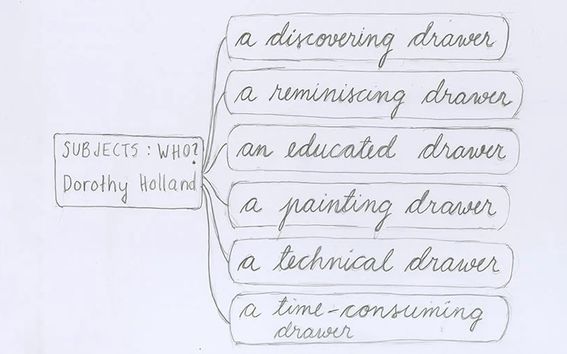 SUBJECTS: WHO?
Dorothy Holland
a discovering drawer
a reminiscing drawer
an educated drawer
a painting drawer
a technical drawer
a time-consuming
drawer